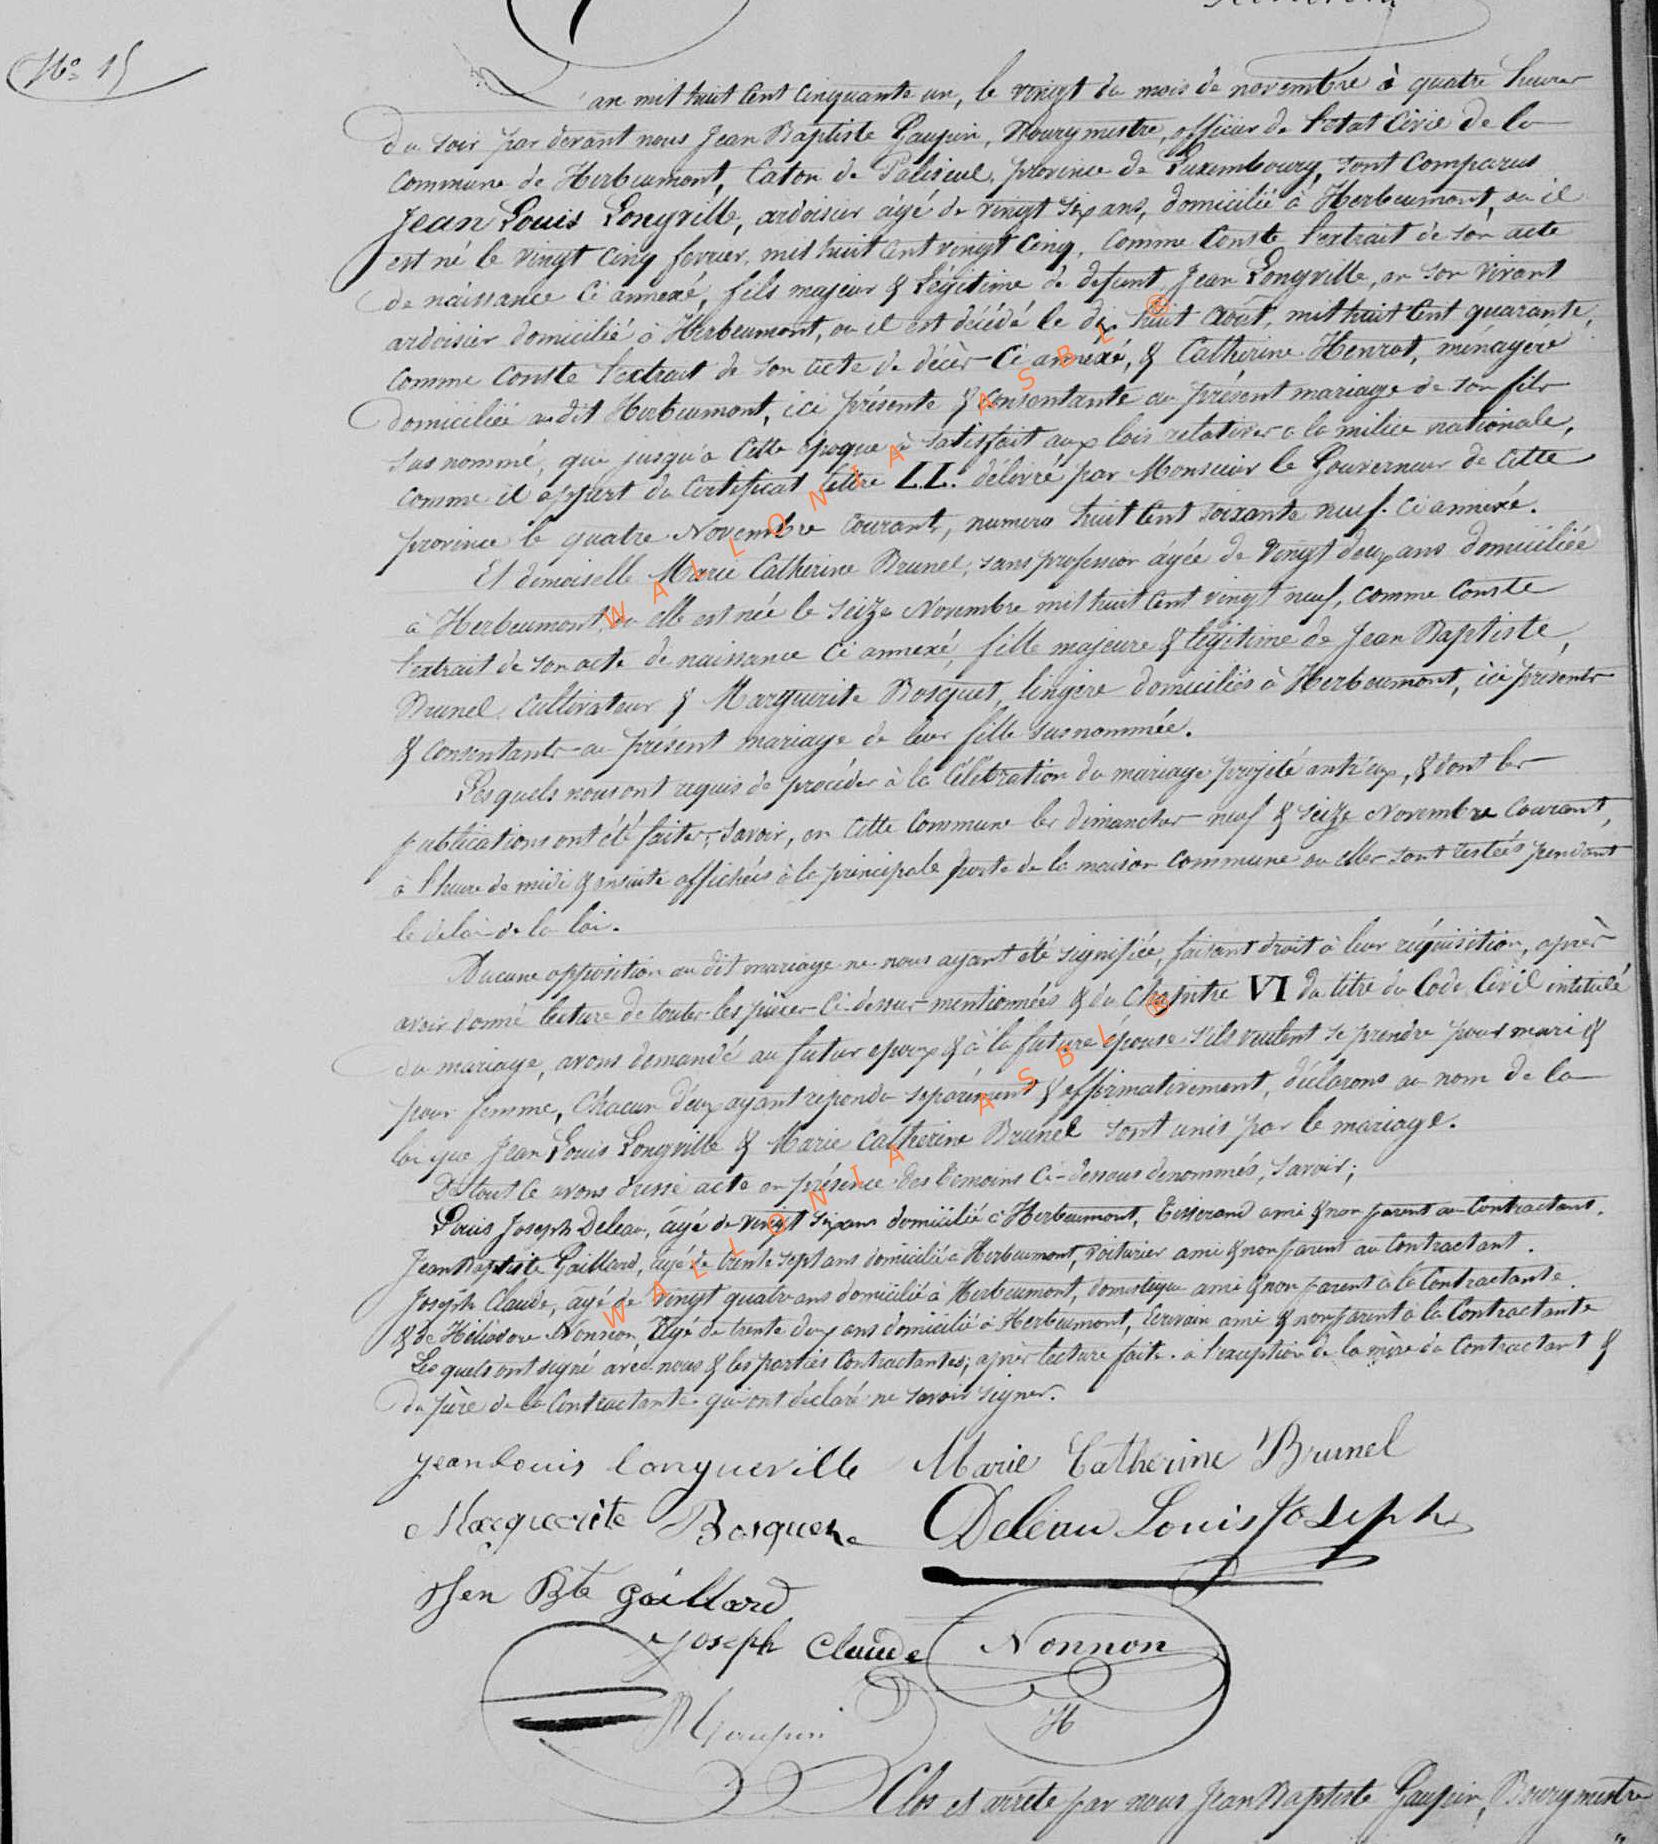 N° 15
an mil huit cent cinquante un, le vingt du mois de novembre à quatre heures
du soir par devant nous Jean Baptiste Gaupin, Bourgmestre, officier de l'etat Civil de la
Commune de Herbeumont, Caton de Paliseul, province de Luxembourg, sont Comparus
Jean Louis Longville, ardoisier âgé de vingt six ans, domicilié à Herbeumont, ou il
est né le vingt cinq fevrier, mil huit cent vingt cinq, comme Conste l'extrait de son acte
de naissance ci annexé, fils majeur & légitime de defunt Jean Longville, en son vivant
ardoisier domicilié à Herbeumont, ou il est décédé le dix huit Août, mil huit cent quarante,
comme conste l'extrait de son acte de décès ci annexé, & Catherine Henrat, ménagère
domiciliée audit Herbeumont, ici présente & consentante au présent mariage de son fils
sus nommé, qui jusqu'à cette époque à satisfait aux lois relatives à la milice nationale,
comme il appert du Certificat lettre L.L. délivré par Monsieur le Gouverneur de cette
province le quatre Novembre courant, numero huit cent soixante neuf. ci annexé.
Et demoiselle Marie Catherine Brunel, sans profession âgée de vingt deux ans domiciliée
à Herbeumont, ou elle est née le seize Novembre mil huit cent vingt neuf, comme Conste
l'extrait de son acte de naissance ci annexé, fille majeure & légitime de Jean Baptiste,
Brunel, cultivateur & Marguerite Bosquet, lingère domiciliés à Herbeumont, ici présents
& consentants au présent mariage de leur fille sus nommée.
Lesquels nous ont requis de procéder à la célébration du mariage projeté entr'eux, & dont les
publications ont été faites, savoir, en cette Commune les dimanches neuf & seize Novembre courant,
à l'heure de midi & ensuite affichées à la principale porte de la maison commune ou elles sont restées pendant
le délai de la loi.
Aucune opposition au dit mariage ne nous ayant été signifiée, faisant droit à leur réquisition, après
avoir donné lecture de toutes les pièces ci-dessus mentionnées & du Chapitre VI du titre du Code Civil intitulé
du mariage, avons demandé au futur epoux & à la future épouse s'ils veulent se prendre pour mari &
pour femme, chacun d'eux ayant répondu séparément & affirmativement, déclarons au nom de la
loi que Jean Louis Longville & Marie Catherine Brunel sont unis par le mariage.
De tout ce avons dressé acte en présence des temoins ci-dessous denommés, savoir;
Louis Joseph Deleau, âgé de vingt six ans domicilié à Herbeumont, Tisserand ami & non parent au Contractant.
Jean Baptiste Gaillard, âgé de trente sept ans domicilié à Herbeumont, voiturier ami & non parent au Contractant.
Joseph Claude, âgé de vingt quatre ans domicilié à Herbeumont, domestique ami & non parent à la Contractante.
& de Héliodore Nonnon, âgé de trente deux ans domicilié à Herbeumont, Ecrivain ami & non parent à la Contractante
Lesquels ont signé avec nous & les parties Contractantes, après lecture faite. à l'exception de la mère du Contractant &
du père de la Contractante qui ont déclaré ne savoir signer.
Jean Louis Longueville Marie Catherine Brunel
Marguerite Bosquet Deleau Louis Joseph
Jen Bte Gaillard
Joseph Claude Nonnon
H
Gaupin
Clos et arrété par nous Jean Baptiste Gaupin, Bourgmestre
WALLONIA ASBL ©
WALLONIA ASBL ©